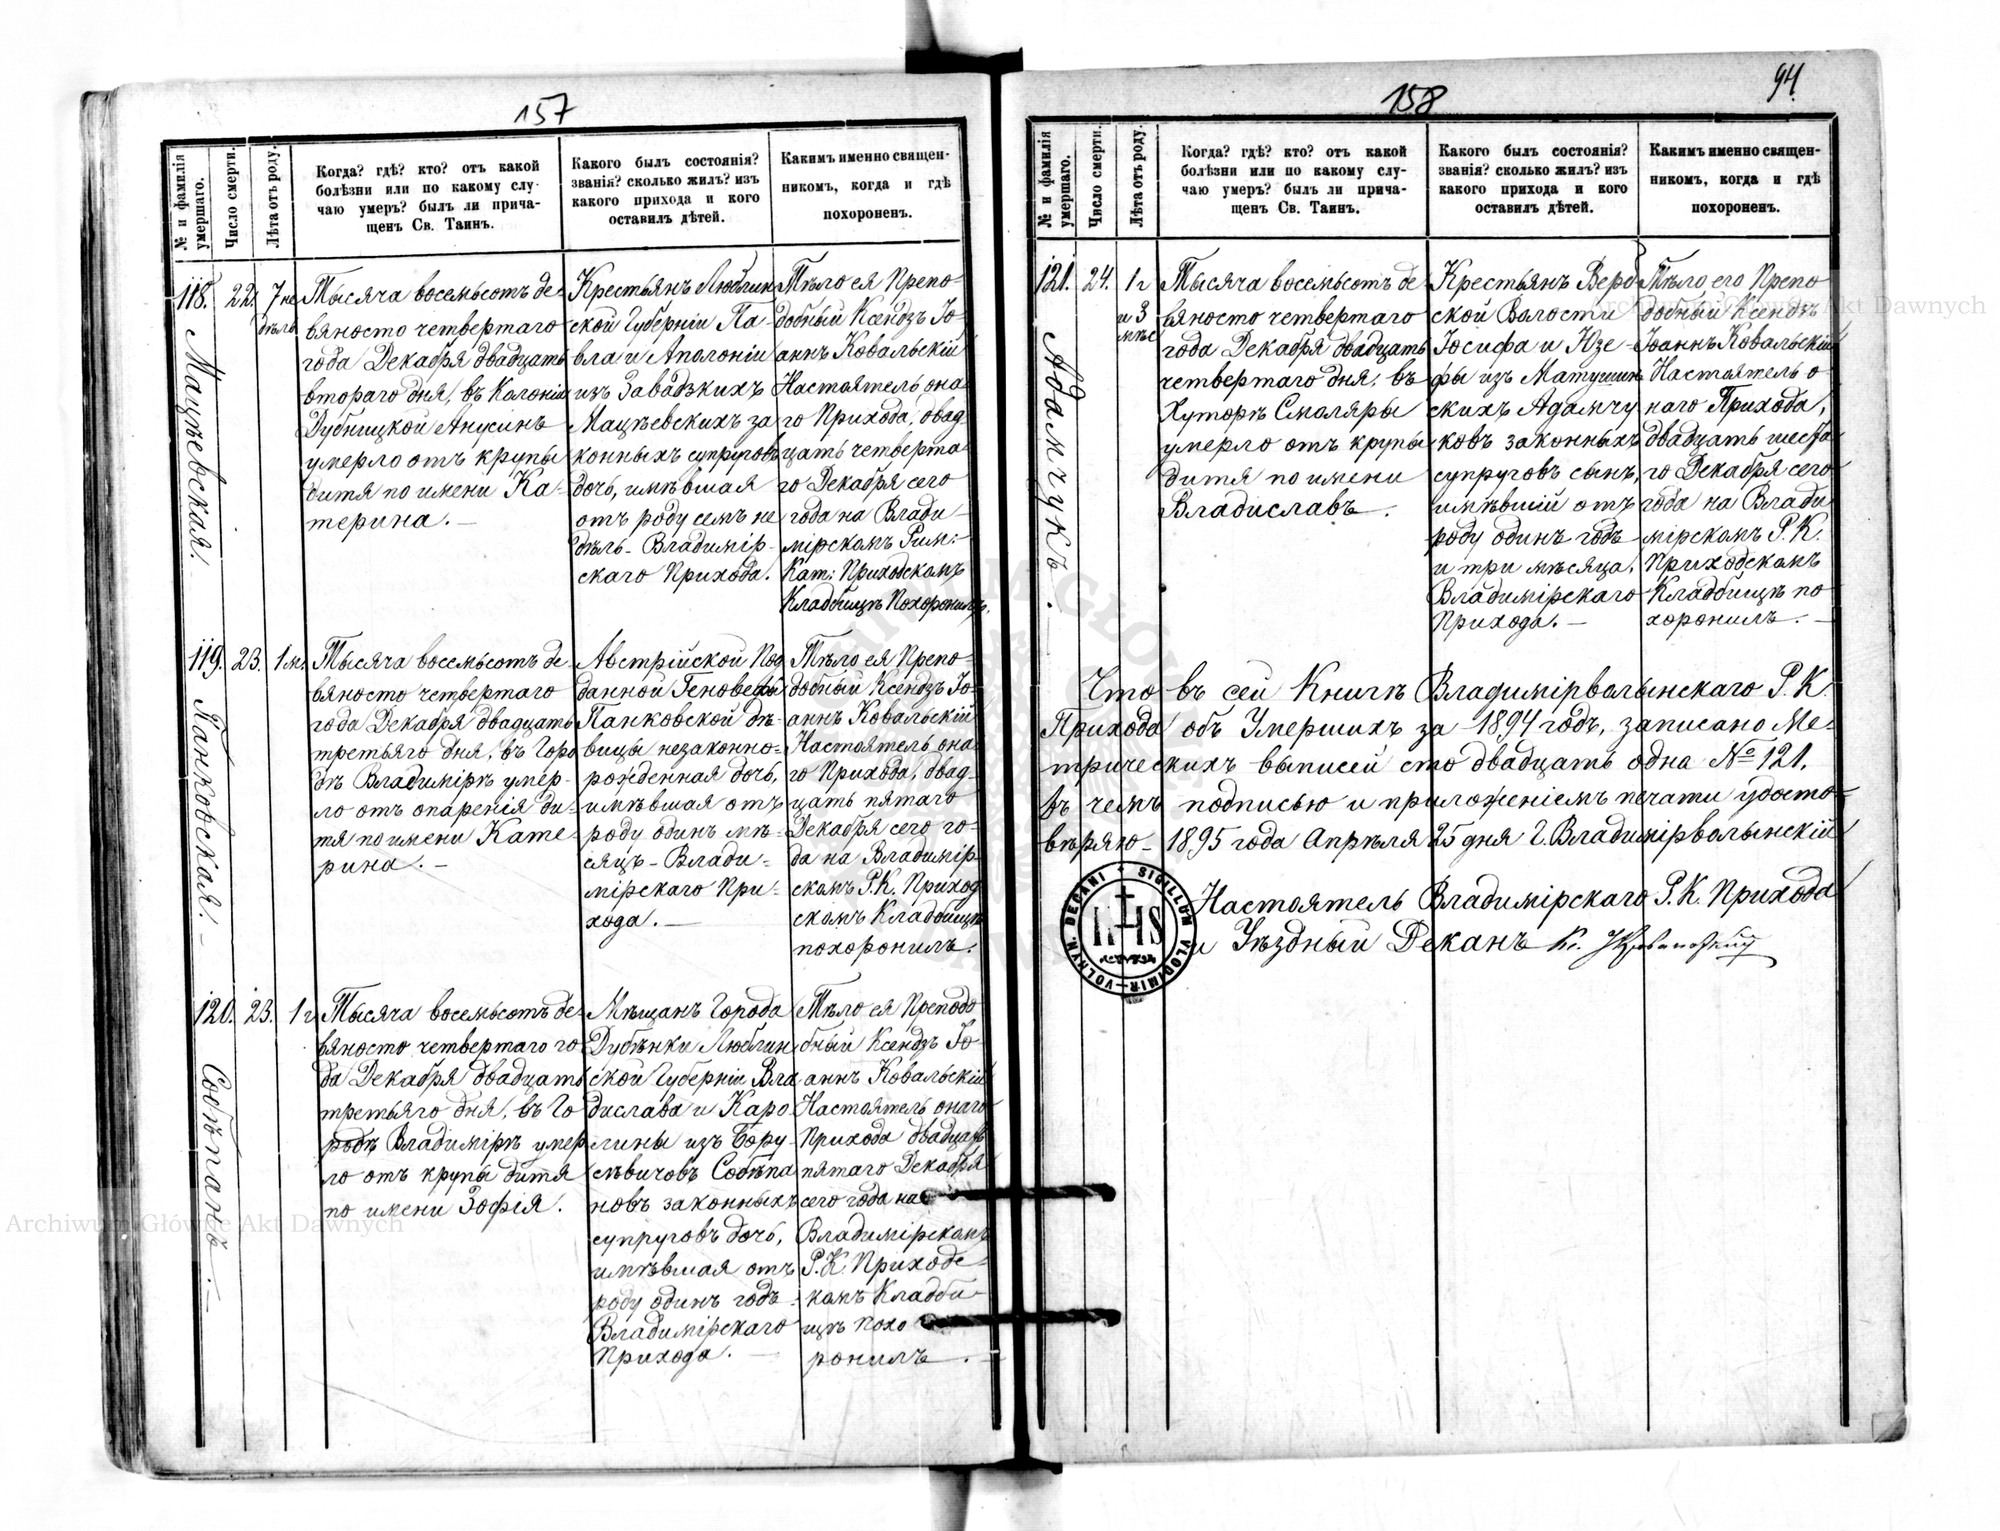 157
№ и фамилія умершаго.
Число смерти.
Лѣта отъ роду.
Когда? гдѣ? кто? отъ какой
болѣзни или по какому слу-
чаю умеръ? былъ ли прича-
щенъ Св. Таинъ.
Какого былъ состоянія?
званія? сколько жилъ? изъ
какого прихода и кого
оставилъ дѣтей.
Какимъ именно священ-
никомъ, когда и гдѣ
похороненъ.
118.
Мацѣевская.
22.
7 не
дѣль
Тысяча восемьсотъ де-
вяносто четвертаго
года Декабря двадцать
втораго дня, въ Колоніи
Дубницкой Анусинъ
умерло отъ крупы
дитя по имени Ка-
терина. —
Крестьянъ Люблин
ской Губерніи Па-
вла и Аполоніи
изъ Завадзкихъ
Мацѣевскихъ за
конныхъ супруговъ
дочь, имѣвшая
отъ роду семь не
дѣль - Владимір-
скаго Прихода.
Тѣло ея Препо-
добный Ксендзъ Іо-
аннъ Ковальскій
Настоятель она
го Прихода, двад
цать четверта
го Декабря сего
года на Влади-
мірскомъ Рим:
Кат: Приходскомъ
Кладбищѣ Похоронилъ.
119.
Панковская. —
23.
1 м.
Тысяча восемьсотъ де-
вяносто четвертаго
года Декабря двадцать
третьяго дня, въ Горо
дѣ Владимірѣ умер-
ло отъ опаренія ди-
тя по имени Кате-
рина. —
Австрійской Под
данной Геновефы
Панковской дѣ-
вицы незаконно-
рожденная дочь,
имѣвшая отъ
роду одинъ мѣ-
сяцъ - Влади-
мірскаго При-
хода. —
Тѣло ея Препо-
добный Ксендзъ Іо-
аннъ Ковальскій
Настоятель она
го Прихода, двад-
цать пятаго
Декабря сего го-
да на Владимір
скомъ Р.К. Приход
скомъ Кладбищѣ
похоронилъ.
120.
Собѣпанъ. —
23.
1 г
Тысяча восемьсотъ де-
вяносто четвертаго го
да Декабря двадцать
третьяго дня, въ Го
родѣ Владимірѣ умер
ло отъ крупы дитя
по имени Зофія.
Мѣщанъ Города
Дубѣнки Люблин
ской Губерніи Вла
дислава и Каро
лины изъ Бору-
сѣвичовъ Собѣпа
новъ законныхъ
супруговъ дочь,
имѣвшая отъ
роду одинъ годъ -
Владимірскаго
Прихода. —
Тѣло ея Преподо
бный Ксендзъ Іо-
аннъ Ковальскій
Настоятель онаго
Прихода двадцать
пятаго Декабря
сего года на
Владимірскомъ
Р.К. Приходс-
комъ Кладби-
щѣ похо
ронилъ. —
158
94
№ и фамилія умершаго.
Число смерти.
Лѣта отъ роду.
Когда? гдѣ? кто? отъ какой
болѣзни или по какому слу-
чаю умеръ? былъ ли прича-
щенъ Св. Таинъ.
Какого былъ состоянія?
званія? сколько жилъ? изъ
какого прихода и кого
оставилъ дѣтей.
Какимъ именно священ-
никомъ, когда и гдѣ
похороненъ.
121.
Адамчукъ. —
24.
1 г
и 3
мѣс
Тысяча восемьсотъ де
вяносто четвертаго
года Декабря двадцать
четвертаго дня, въ
Хуторѣ Смоляры
умерло отъ крупы
дитя по имени
Владиславъ.
Крестьянъ Верб
ской Волости
Іосифа и Юзе-
фы изъ Матушин
скихъ Адамчу
ковъ законныхъ
супруговъ сынъ,
имѣвшій отъ
роду одинъ годъ
и три мѣсяца,
Владимірскаго
Прихода. —
Тѣло его Препо
добный Ксендзъ
Іоаннъ Ковальскій
Настоятель о
наго Прихода,
двадцать шеста
го Декабря сего
года на Влади
мірскомъ Р.К.
Приходскомъ
Кладбищѣ по
хоронилъ. —
Что въ сей Книгѣ Владимірволынскаго Р.К.
Прихода объ Умершихъ за 1894 годъ, записано Ме-
трическихъ выписей сто двадцать одна № 121,
въ чемъ подписью и приложеніемъ печати удосто-
вѣряю - 1895 года Апрѣля 25 дня Г. Владимірволынскій
Настоятель Владимірскаго Р.К. Прихода
и Уѣздный Деканъ К.
SIGILLUM VLODIMIR-VOLNYN. DECANI
IHS
Archiwum Główne Akt Dawnych
Archiwum Główne Akt Dawnych